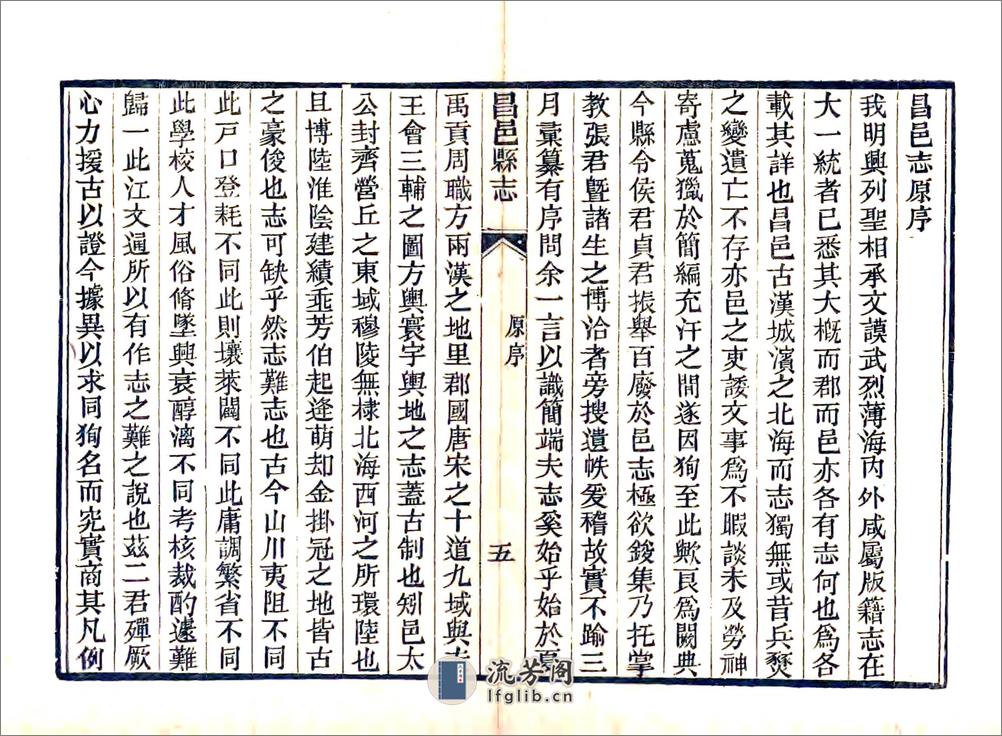 昌邑志原序
我明興列聖相承文謨武烈薄海內外咸屬版籍志在
大一統者已悉其大概而郡而邑亦各有志何也為各
載其詳也昌邑古漢城濱之北海而志獨無或昔兵燹
之變遺亡不存亦邑之吏諉文事爲不暇談未及勞神
寄慮蒐獵於簡編充汗之間遂因狥至此歟良爲闕典
今縣令侯君貞君振舉百廢於邑志極欲鋟集乃托掌
教張君暨諸生之博洽者旁搜遺帙爰稽故實不踰三
月彙纂有序問余一言以識簡端夫志奚始乎始於夏
昌邑縣志
原序
五
禹貢周職方兩漢之地里郡國唐宋之十道九域與夫
王會三輔之圖方輿寰宇輿地之志蓋古制也矧邑太
公封齊營丘之東域穆陵無棣北海西河之所環陸也
且博陸淮陰建績垂芳伯起逄萌却金掛冠之地皆古
之豪俊也志可缺乎然志難志也古今山川夷阻不同
此戸口登耗不同此則壤萊闢不同此庸調繁省不同
此學校人才風俗脩墜興衰醇漓不同考核裁酌遽難
歸一此江文通所以有作志之難之說也茲二君殫厥
心力援古以證今據異以求同狥名而究實商其凡例
流芳阁
lfglib.cn